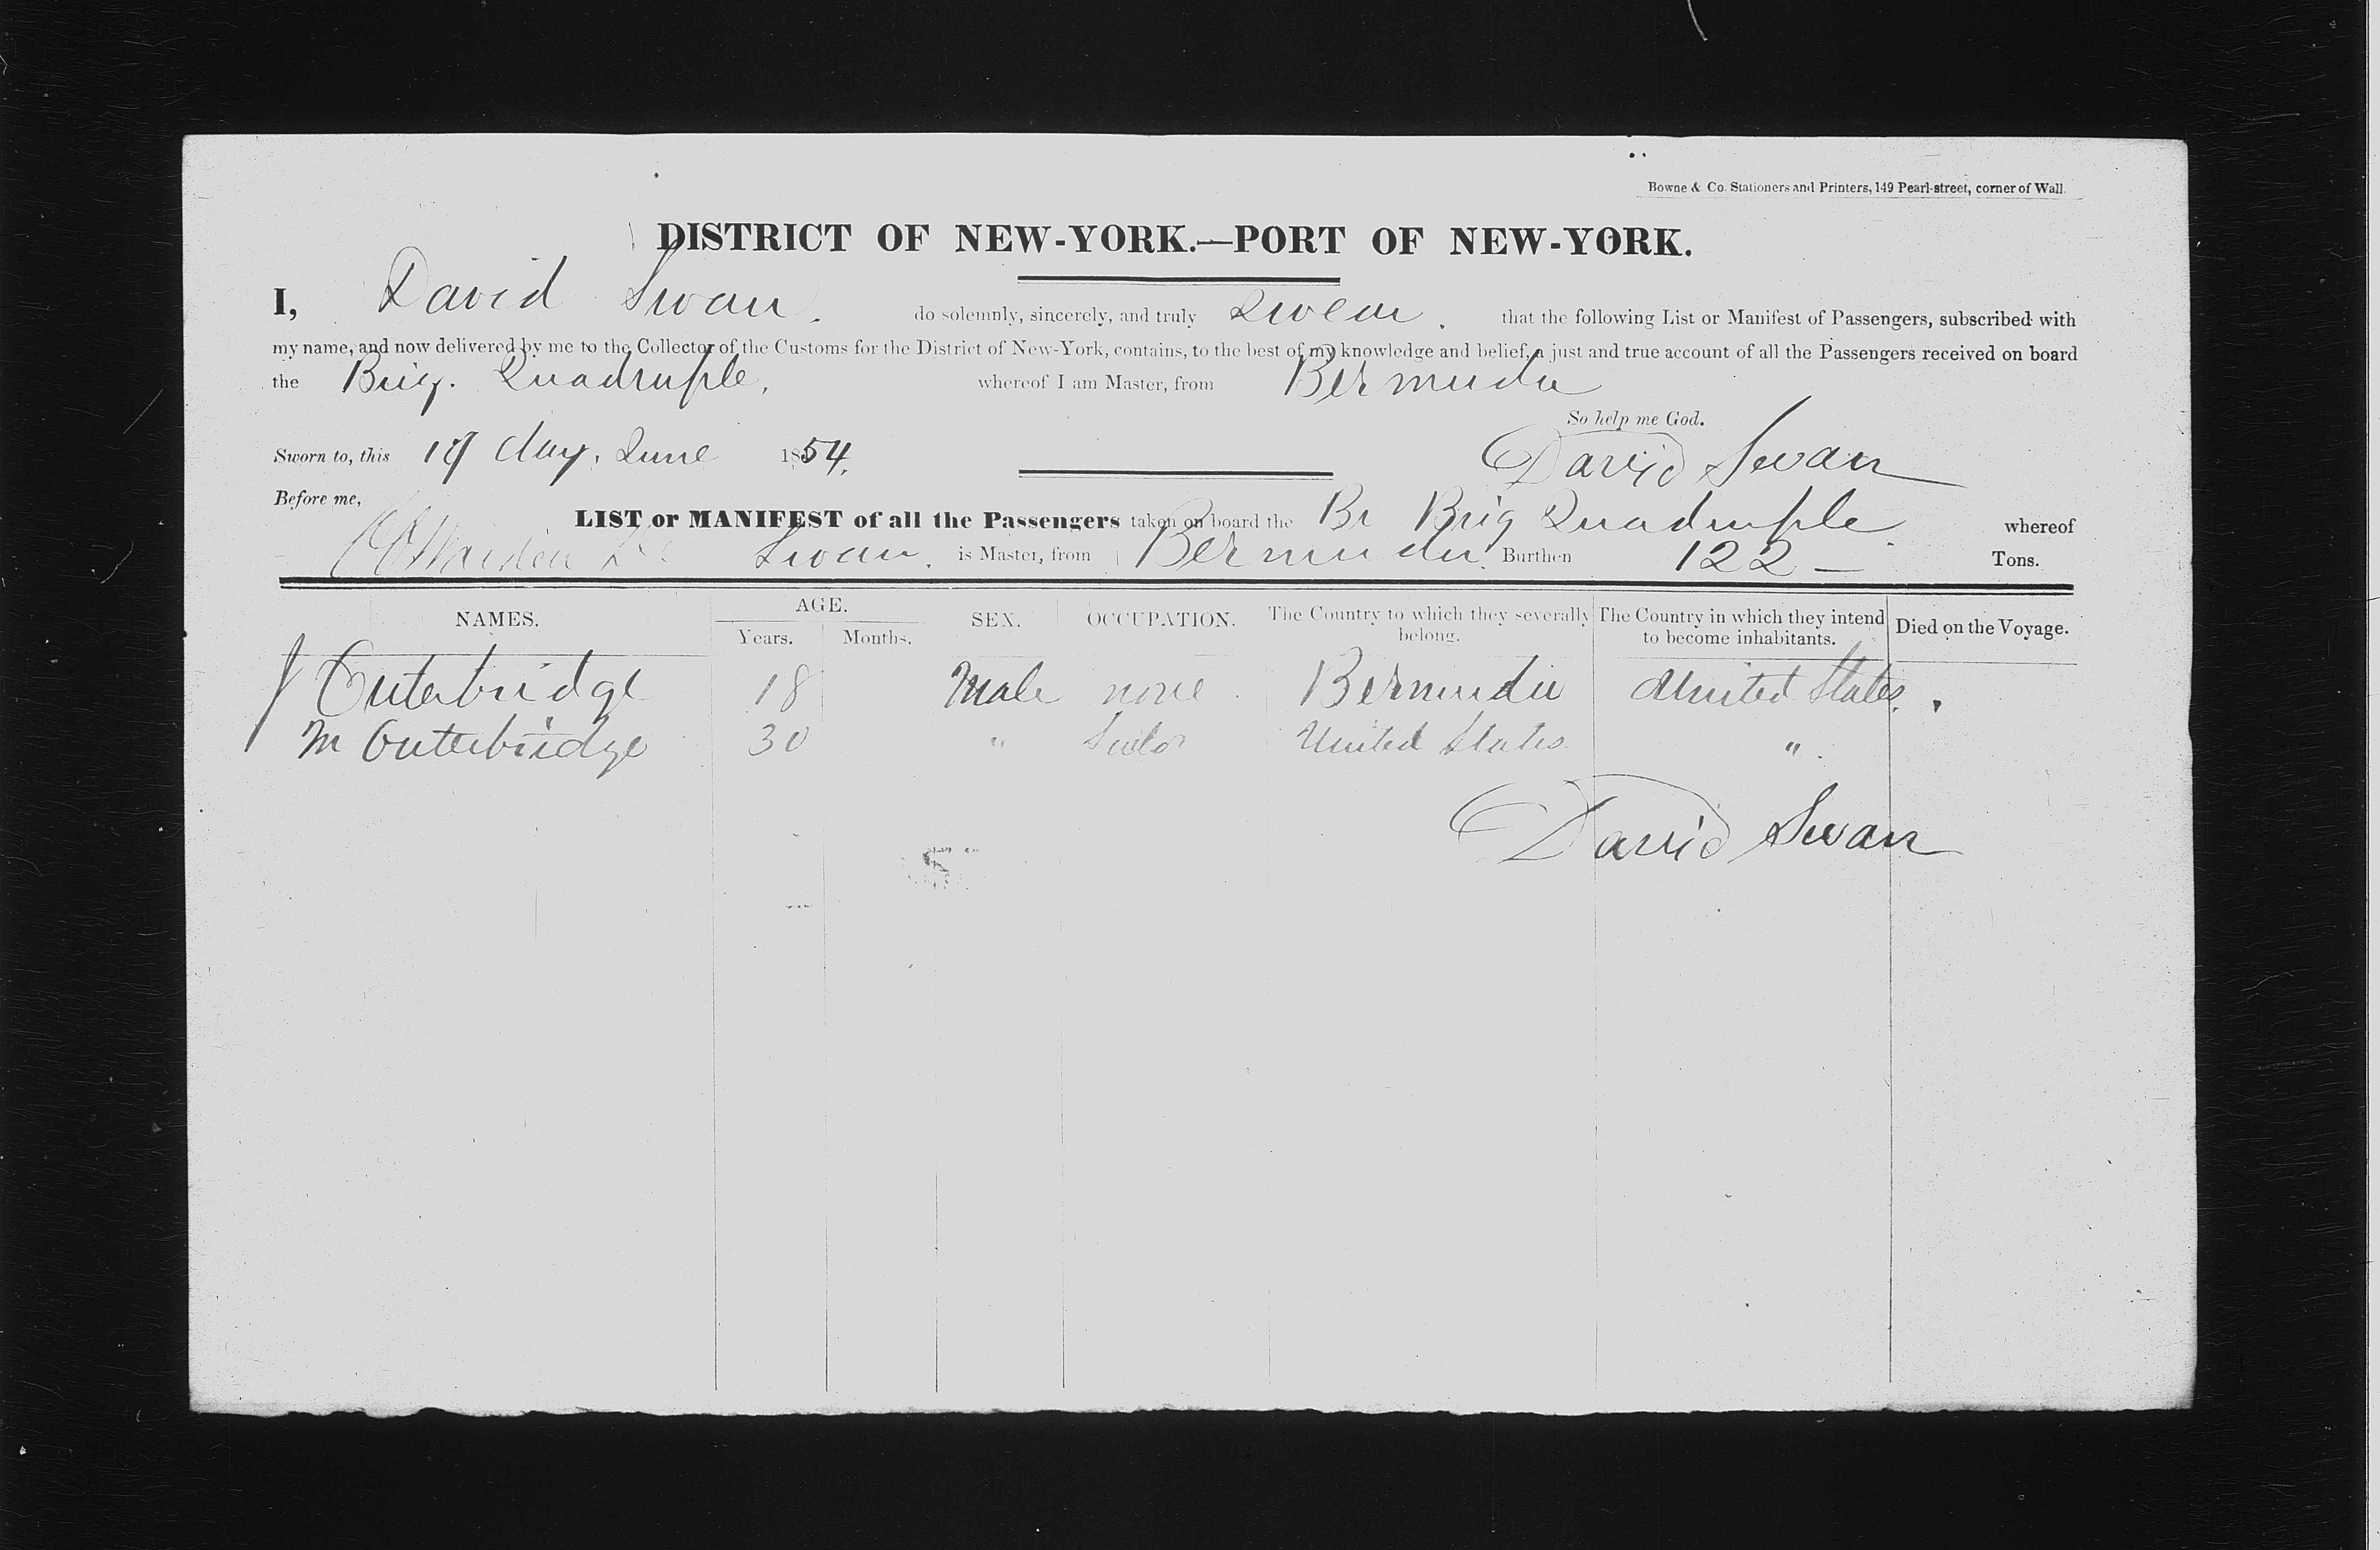 Bowne & Co. Stationers and Printers, 149 Pearl-street, corner of Wall.
DISTRICT OF NEW-YORK.—PORT OF NEW-YORK.
I, David Swan. do solemnly, sincerely, and truly Swear. that the following List or Manifest of Passengers, subscribed with
my name, and now delivered by me to the Collector of the Customs for the District of New-York, contains, to the best of my knowledge and belief, a just and true account of all the Passengers received on board
the Brig. Quadruple, whereof I am Master, from Bermuda
So help me God.
Sworn to, this day, June 1854. David Swan
Before me,
LIST or MANIFEST of all the Passengers taken on board the Br Brig Quadruple. whereof
Swan. is Master, from Bermuda. Burthen 122 — Tons.
NAMES. AGE. Years. Months. SEX. OCCUPATION. The Country to which they severally belong. The Country in which they intend to become inhabitants. Died on the Voyage.
J Outerbridge 18 Male none Bermuda United States.
M Outerbridge 30 " Sailor United States "
David Swan